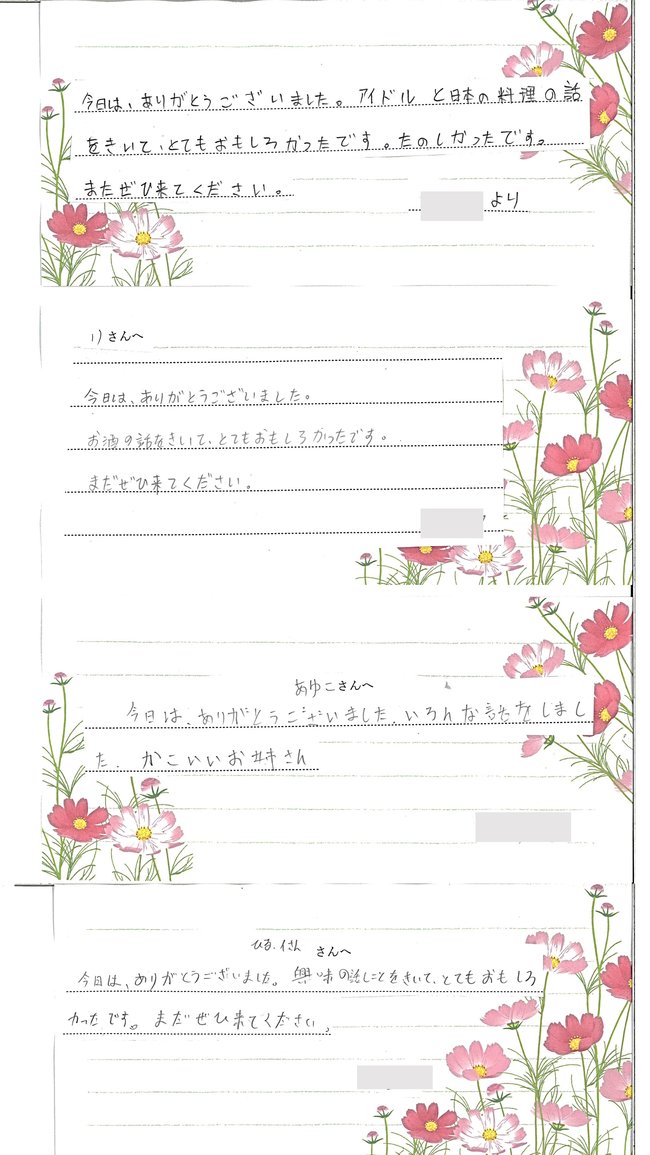 今日は、ありがとうございました。アイドルと日本の料理の話
をきいて、とてもおもしろかったです。たのしかったです。
またぜひ来てください。
より
りさんへ
今日は、ありがとうございました。
お酒の話をきいて、とてもおもしろかったです。
まだぜひ来てください。
あゆこさんへ
今日は、ありがとうございました、いろんな話をしまし
た、かこいいお姉さん
さんへ
今日は、ありがとうございました。興味の話しことをきいて、とてもおもしろ
かったです。まだぜひ来てください。